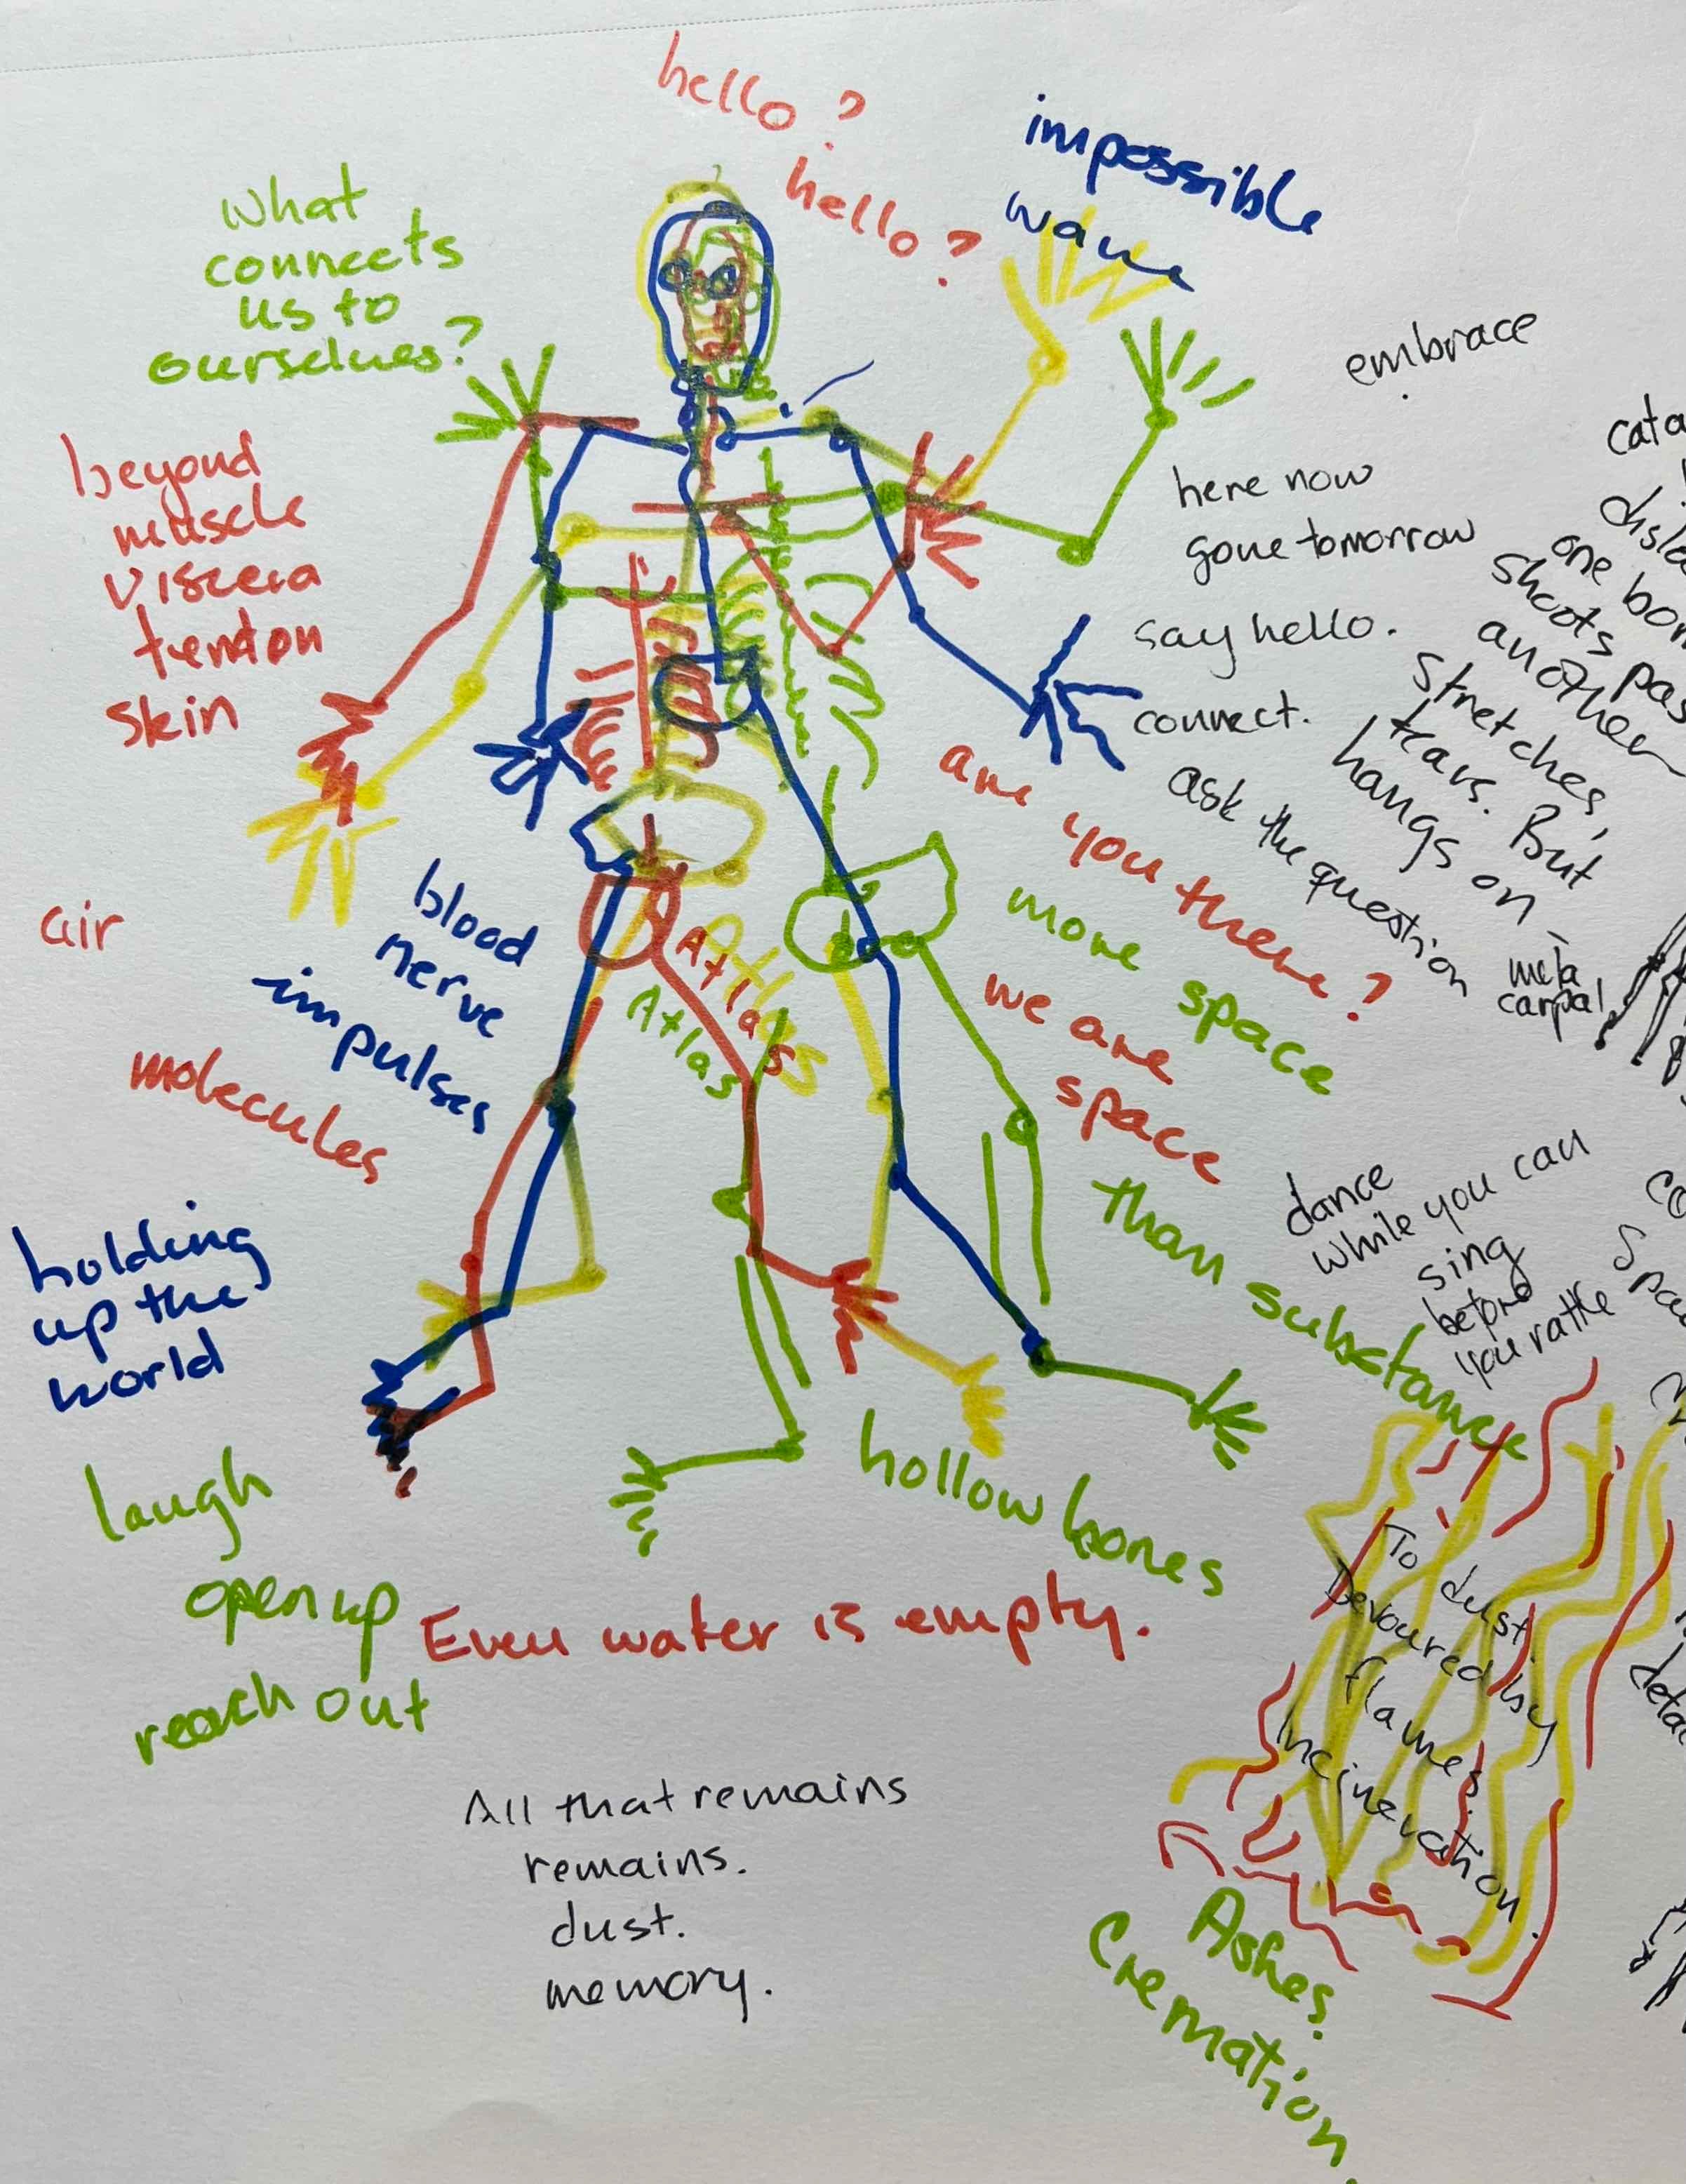 hello?
hello?
impossible
wave
What
connects
us to
ourselves?
embrace
beyond
muscle
viscera
tendon
skin
here now
gone tomorrow
say hello.
connect.
ask the question
one
shoots
another
stretches,
tears. But
hangs on -
meta
carpal
are
you there?
more
space
we are
space
than substance
air
blood
nerve
impulses
molecules
Atlas
Atlas
Atlas
holding
up the
world
dance
while you can
sing
before
you rattle
laugh
open up
reach out
hollow bones
Even water is empty.
To dust
Devoured by
flames.
Incineration.
All that remains
remains.
dust.
memory.
Ashes.
Cremation.